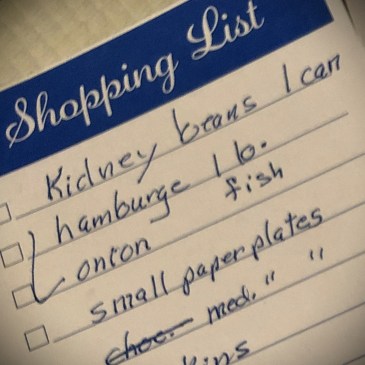 Shopping List
Kidney beans 1 can
hamburge 1 lb.
fish
onion
small paper plates
choc. med. " "
kins